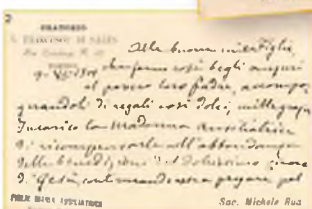 2
ORATORIO
S. FRANCESCO DI SALES
TORINO
Alle buone mie Figlie,
che fanno così begli auguri
al povero loro padre, accompa
gnandoli di regali così dolci, mille grazie
Incarico la Madonna Ausiliatrice
di ricompensarle coll'abbondanza
delle benedizioni del dolcissimo cuore
di Gesù, continuando a pregare pel
Sac. Michele Rua